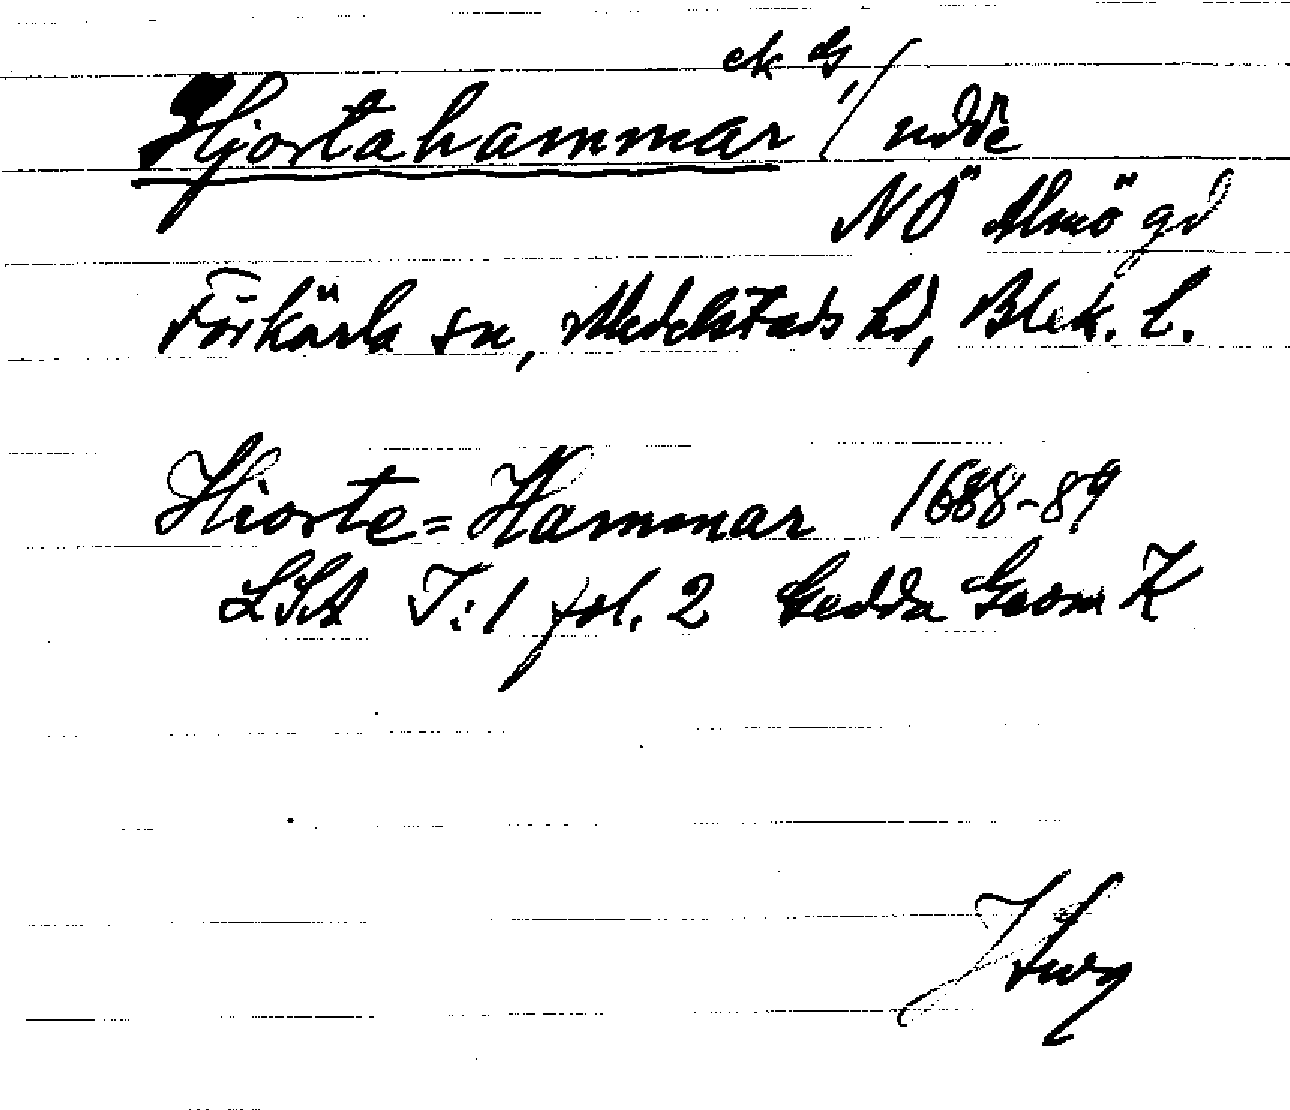 Hjortahammar / udde
NÖ Almö gd
Förkärla sn, Medelstads hd, Blek. l.
Hiorte=Hammar 1688-89
LSA I:1 fol. 2 Gedda Geom K